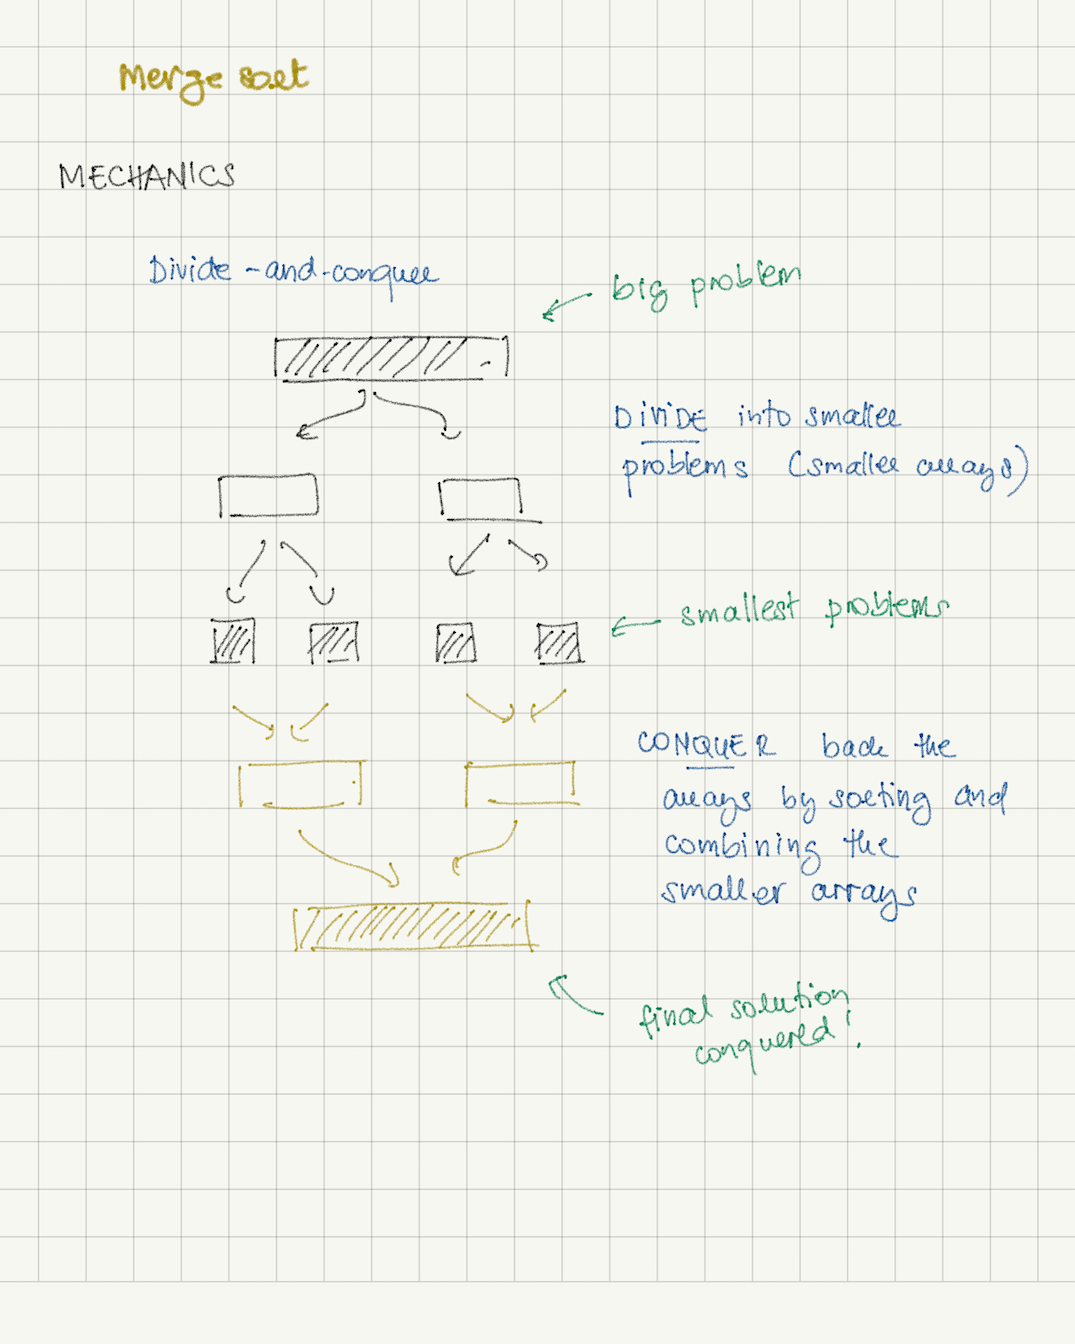 Merge sort
MECHANICS
Divide-and-conquer
big problem
DIVIDE into smaller
problems (smaller arrays)
smallest problems
CONQUER back the
arrays by sorting and
combining the
smaller arrays
final solution
conquered!